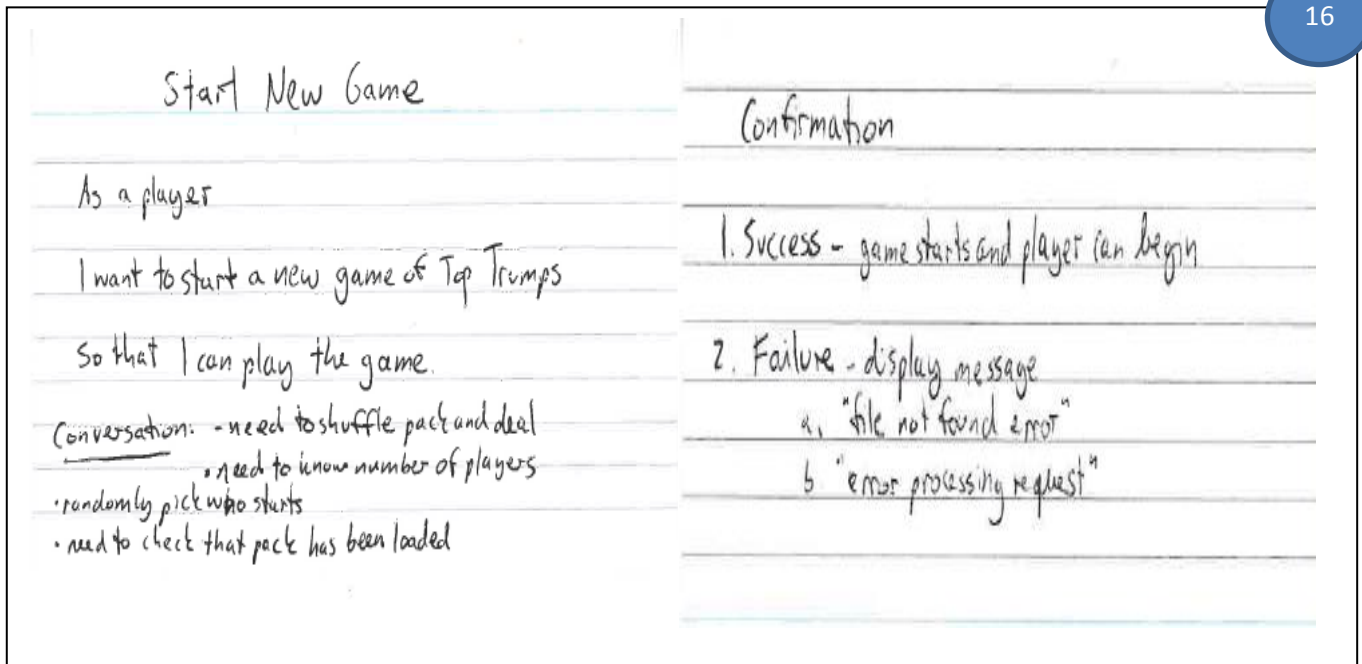 16
Start New Game
As a player
I want to start a new game of Top Trumps
So that I can play the game.
Conversation: - need to shuffle pack and deal
• need to know number of players
• randomly pick who starts
• need to check that pack has been loaded
Confirmation
1. Success - game starts and player can begin
2. Failure - display message
a. "file not found error"
b "error processing request"